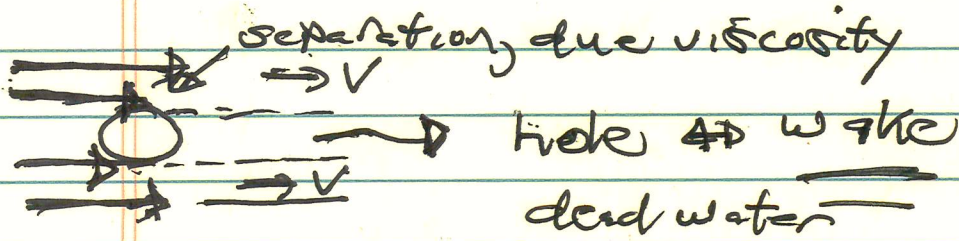 separation, due viscosity
→ V
hole ⇔ wake
→ V
dead water